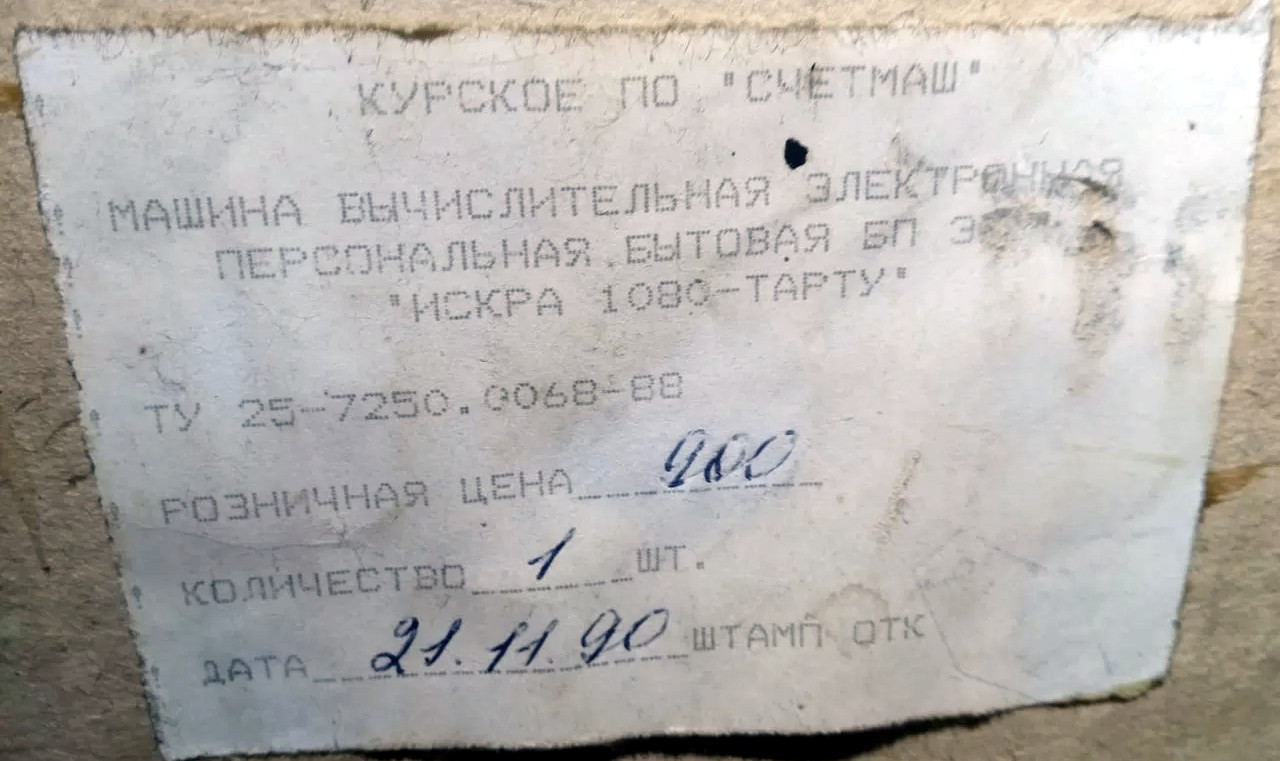 КУРСКОЕ ПО "СЧЕТМАШ"
МАШИНА ВЫЧИСЛИТЕЛЬНАЯ ЭЛЕКТРОННАЯ
ПЕРСОНАЛЬНАЯ БЫТОВАЯ БП
"ИСКРА 1080-ТАРТУ"
ТУ 25-7250.0068-88
РОЗНИЧНАЯ ЦЕНА 900
КОЛИЧЕСТВО 1 ШТ.
ДАТА 21.11.90 ШТАМП ОТК